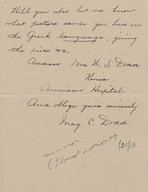 Will you also let me know
what picture series you have in
the Greek language, giving
the price &c.
Address Mrs W. S. Dodd
Konia
American Hospital
And oblige yours sincerely
Mary C. Dodd.